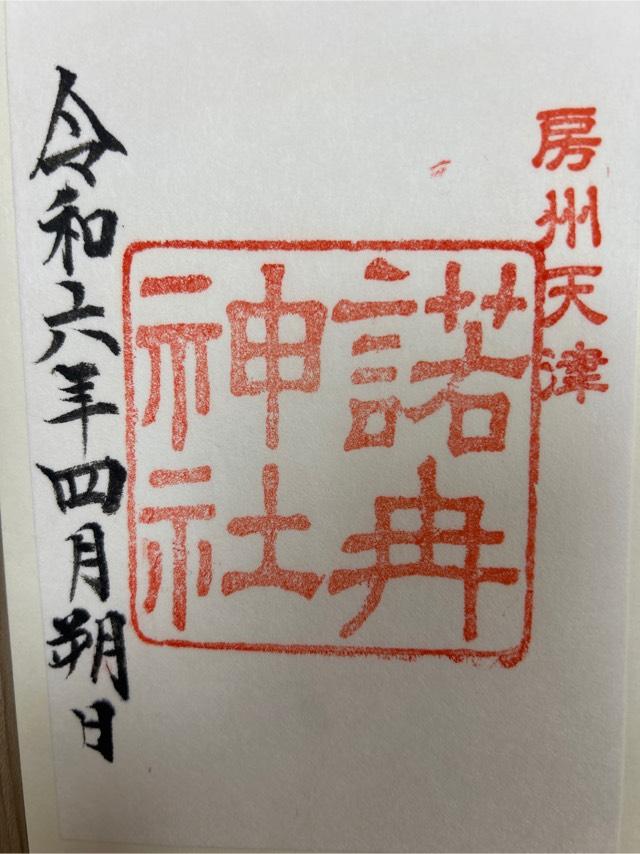 房州天津
諾冉
神社
令和六年四月朔日